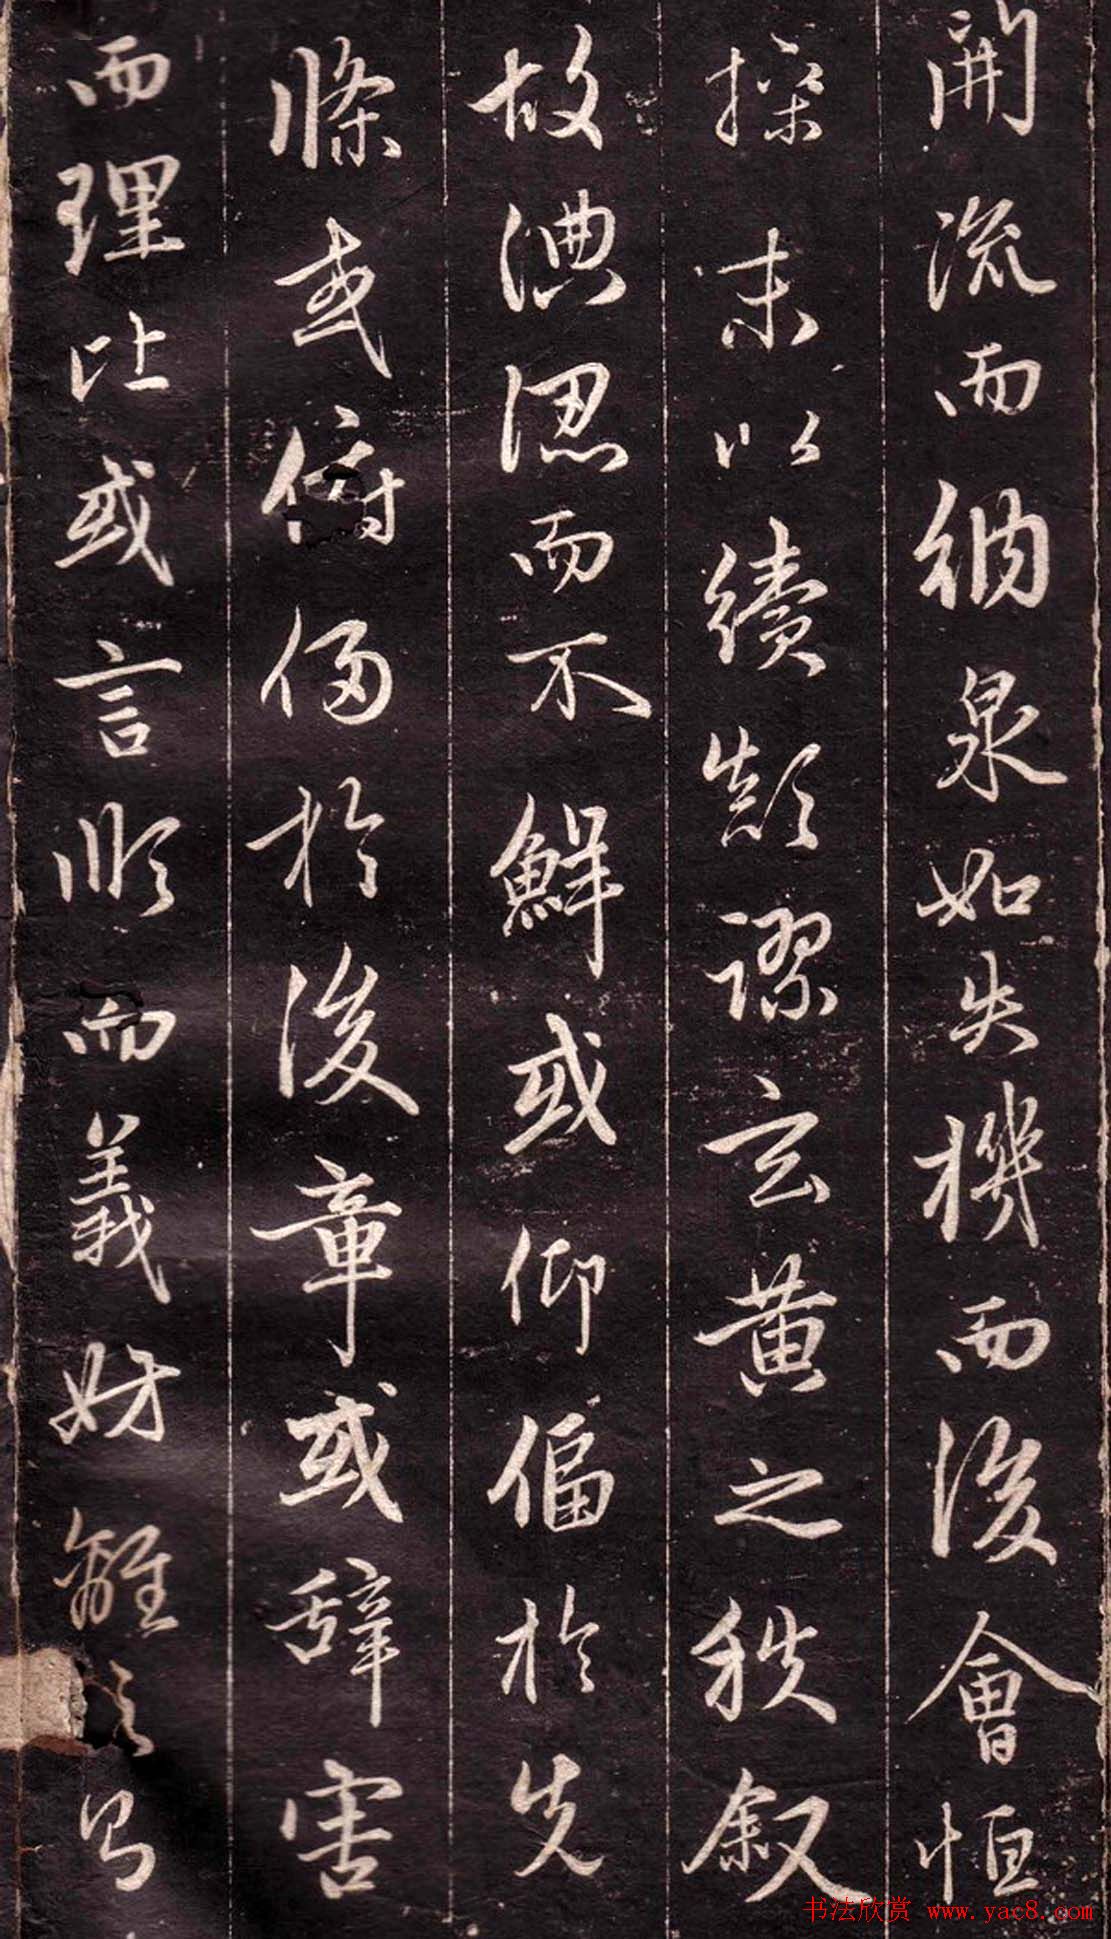 開流而納泉如失機而後會恒
操末以續顛謬玄黄之秩叙
故淟涊而不鮮或仰偪於先
條或俯侵於後章或辭害
而理比或言順而義妨離之則
书法欣赏 www.yac8.com